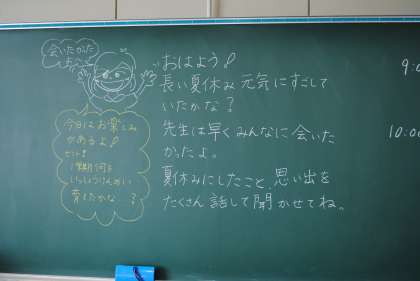 会いたかった
よ〜
おはよう!
長い夏休み 元気にすごして
いたかな?
先生は早くみんなに会いた
かったよ。
夏休みにしたこと、思い出を
たくさん話して聞かせてね。
今日はお楽しみ
があるよ!
ヒント
1学期 何を
いっしょうけんめい
育てたかな?
9:0
10:00